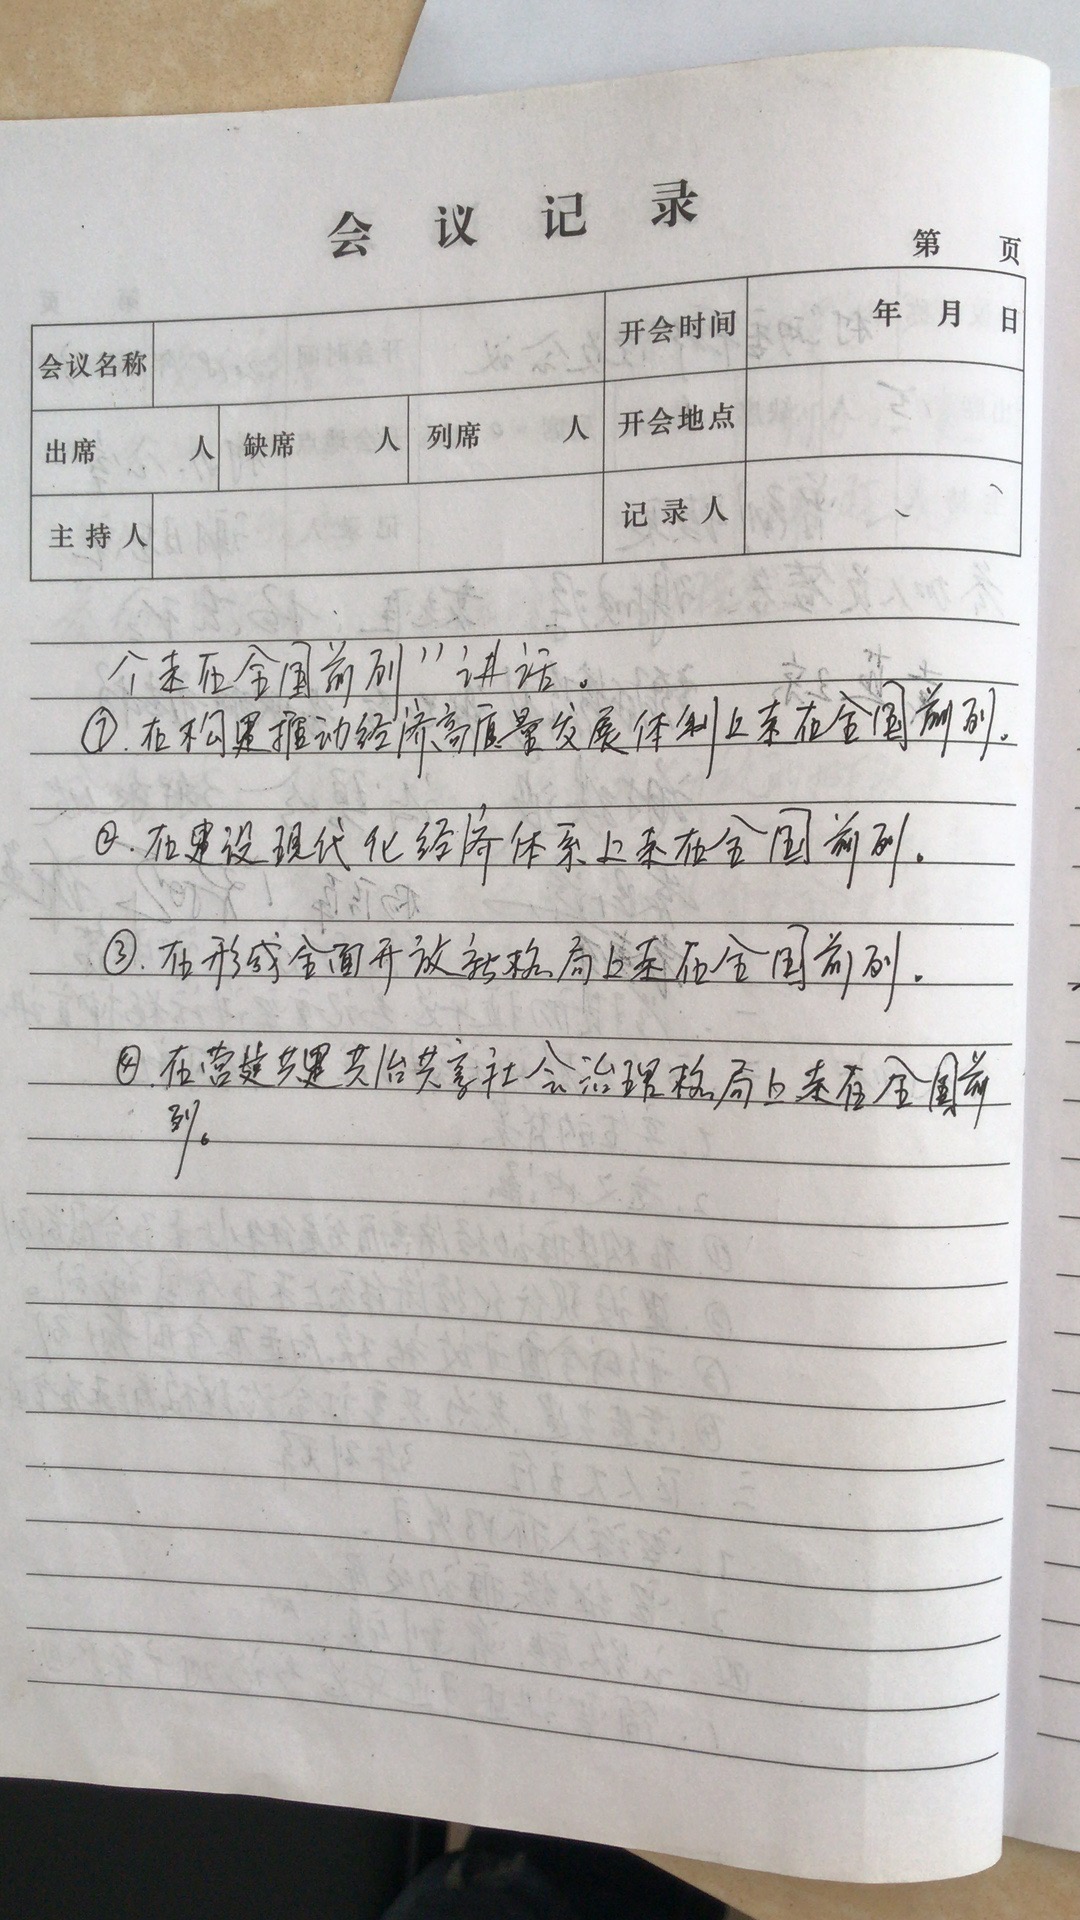 会议记录
第 页
会议名称 开会时间 年 月 日
出席 人 缺席 人 列席 人 开会地点
主持人 记录人
个走在全国前列”讲话。
①.在构建推动经济高质量发展体制上走在全国前列。
②.在建设现代化经济体系上走在全国前列。
③.在形成全面开放新格局上走在全国前列。
④.在营造共建共治共享社会治理格局上走在全国前
列。